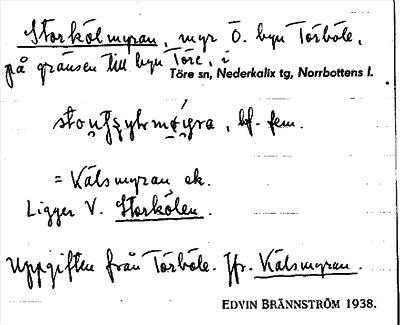 Storkölmyran, myr Ö. byn Törböle,
på gränsen till byn Töre, i
Töre sn, Nederkalix tg, Norrbottens l.
bf. fem.
= Kälsmyran ek.
Ligger V. Storkölen.
Uppgiften från Törböle. Jfr. Kälsmyran.
EDVIN BRÄNNSTRÖM 1938.